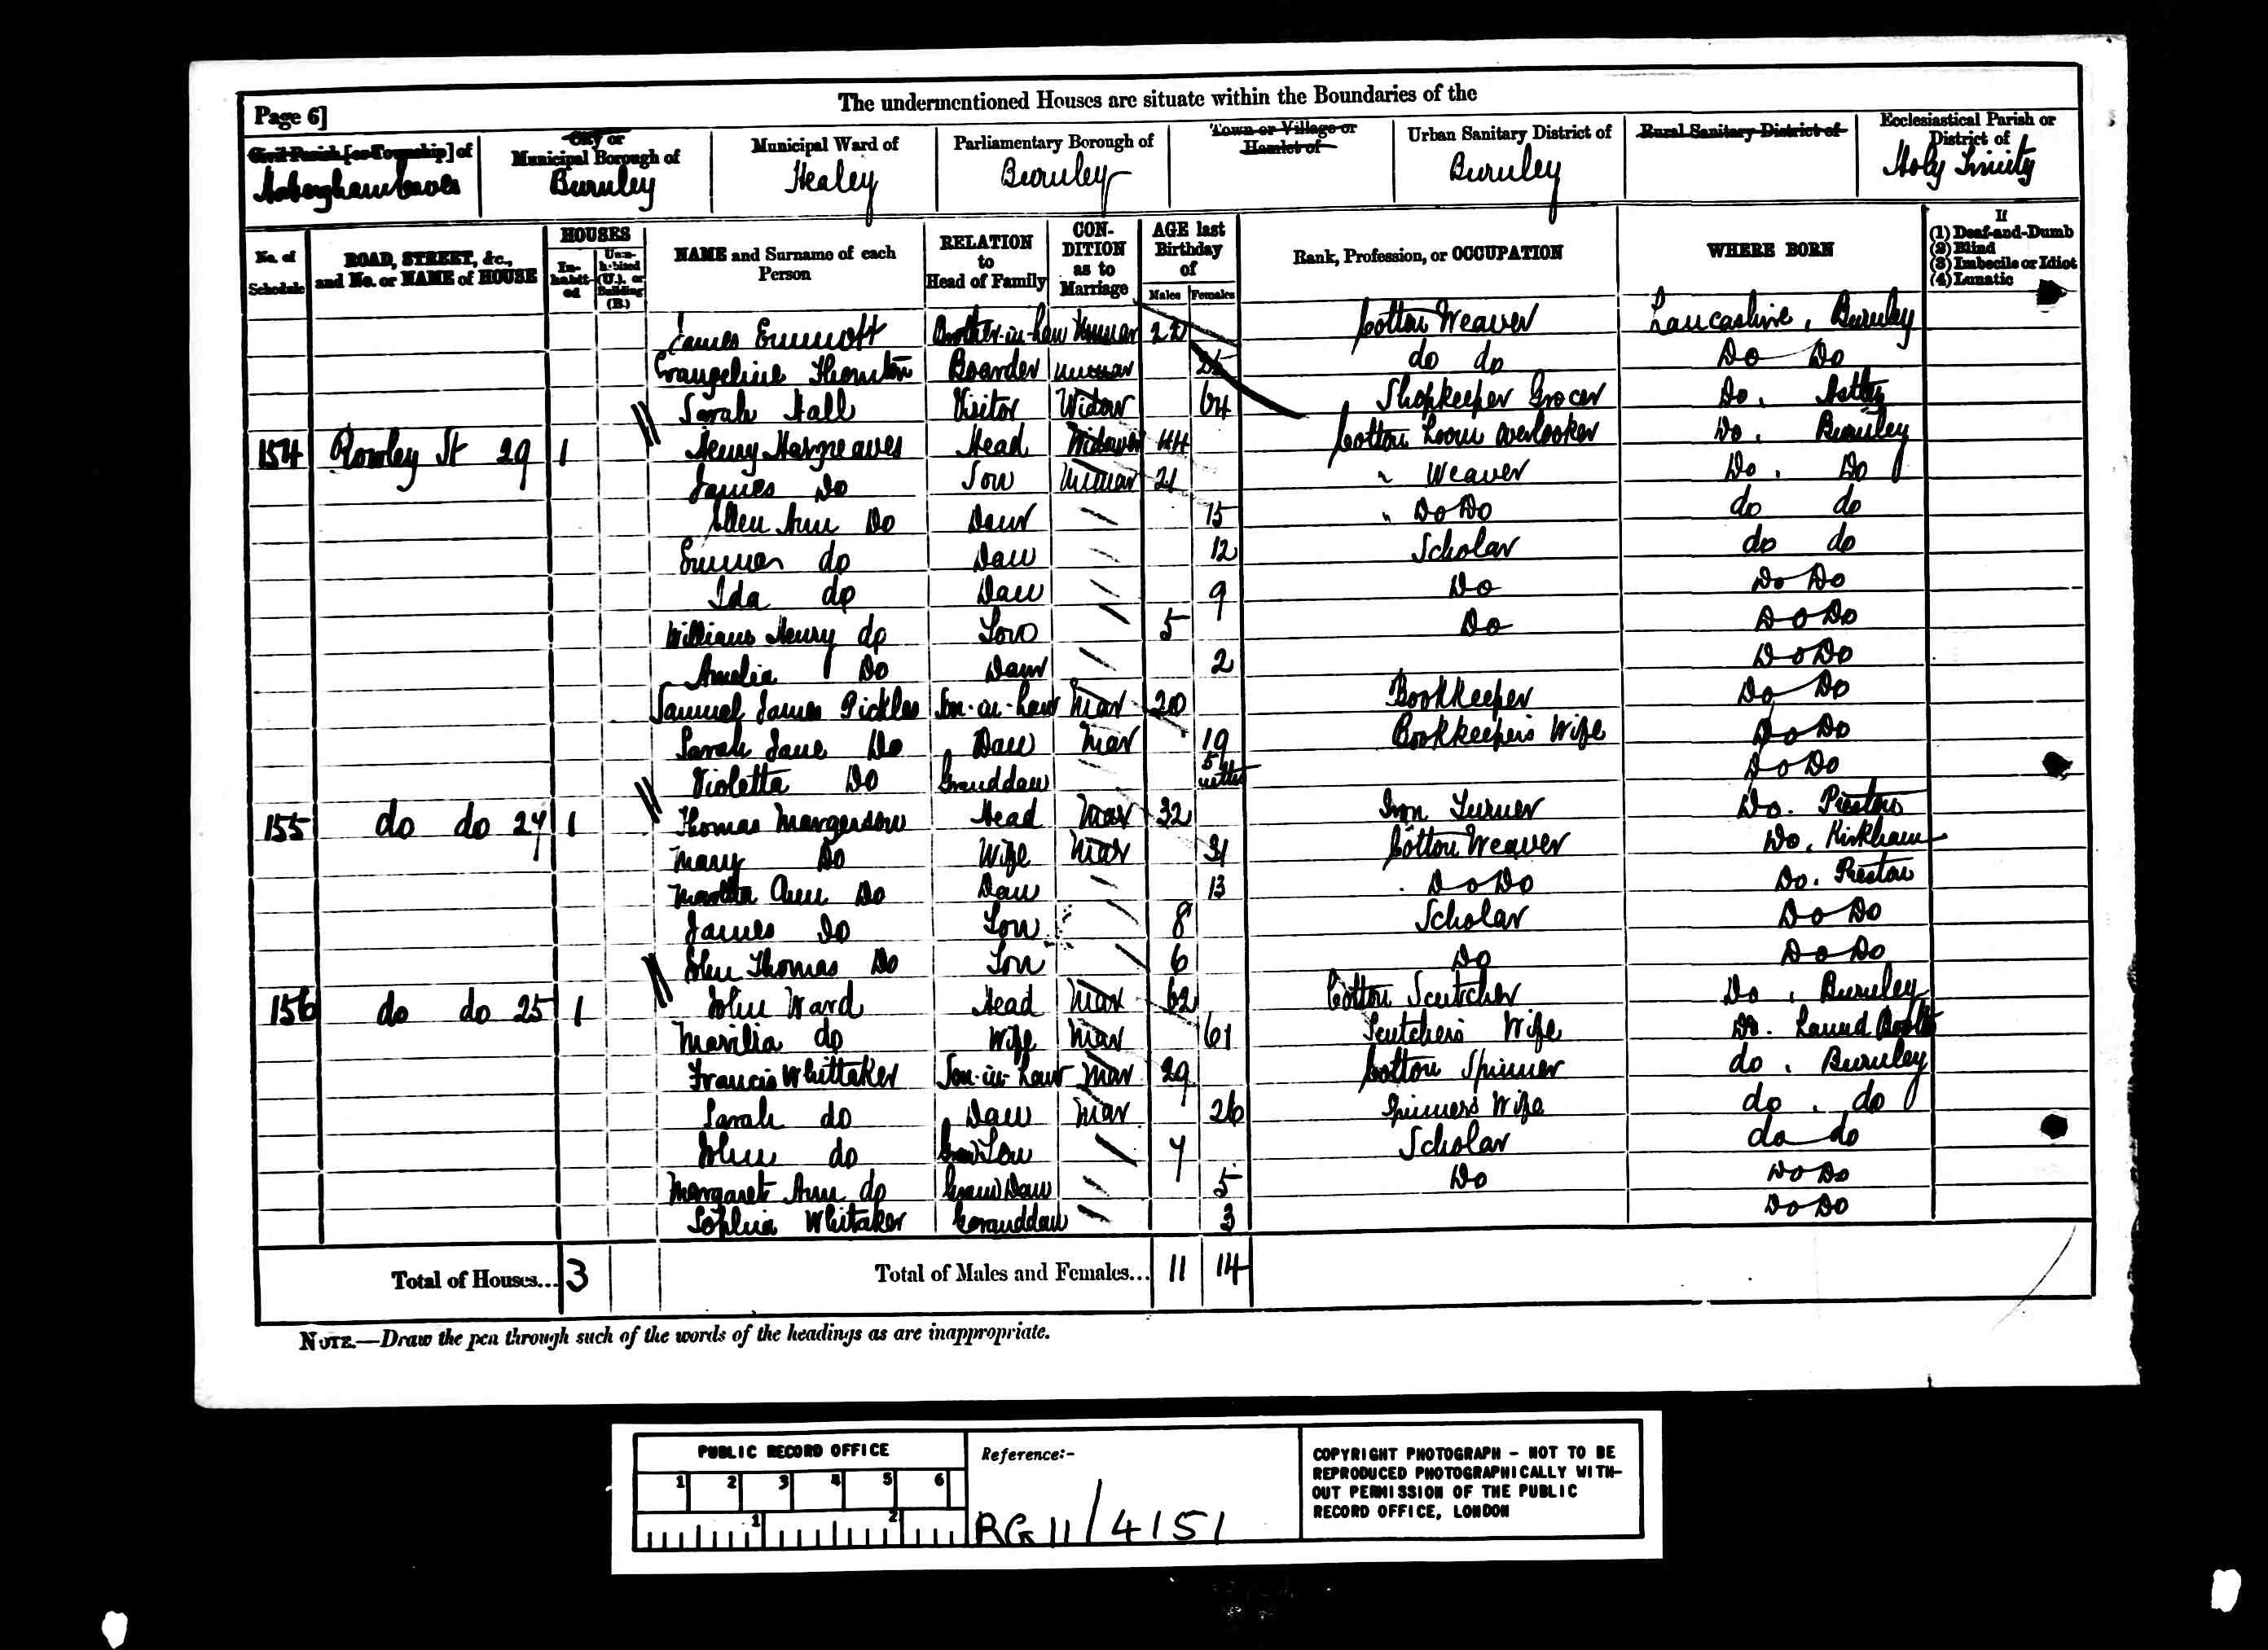 The undermentioned Houses are situate within the Boundaries of the
Page 6]
Civil Parish [or Township] of
City or Municipal Borough of
Municipal Ward of
Parliamentary Borough of
Town or Village or Hamlet of
Urban Sanitary District of
Rural Sanitary District of
Ecclesiastical Parish or District of
Burnley Healey Burnley Burnley Holy Trinity
No. of Schedule
ROAD, STREET, &c., and No. or NAME of HOUSE
HOUSES
In-habit-ed
Unin-habited (U.), or Building (B.)
NAME and Surname of each Person
RELATION to Head of Family
CON-DITION as to Marriage
AGE last Birthday of
Males Females
Rank, Profession, or OCCUPATION
WHERE BORN
If
(1) Deaf-and-Dumb
(2) Blind
(3) Imbecile or Idiot
(4) Lunatic
James Emmott Brother-in-Law Unmar 22 Cotton Weaver Lancashire, Burnley
Evangeline Thornton Boarder Unmar do do Do Do
Sarah Hall Visitor Widow 64 Shopkeeper Grocer Do.
154 Rowley St 29 1 Henry Hargreaves Head Widower 44 Cotton Loom Overlooker Do. Burnley
James Do Son Unmar 21 " Weaver Do. Do
Ellen Ann Do Daur 15 " Do Do do do
Emma do Daw 12 Scholar do do
Ida do Daw 9 Do Do Do
William Henry do Son 5 Do Do Do
Amelia Do Daur 2 Do Do
Samuel James Pickles Son-in-Law Mar 20 Bookkeeper Do Do
Sarah Jane Do Daw Mar 19 Bookkeepers Wife Do Do
Violetta Do Granddaw 5 mths Do Do
155 do do 27 1 Thomas Margerson Head Mar 32 Iron Turner Do. Preston
Mary Do Wife Mar 31 Cotton Weaver Do. Kirkham
Martha Ann Do Daw 13 Do Do Do. Preston
James Do Son 8 Scholar Do Do
John Thomas Do Son 6 Do Do Do
156 do do 25 1 John Ward Head Mar 62 Cotton Scutcher Do, Burnley
Marilia do Wife Mar 61 Scutchers Wife Do.
Francis Whittaker Son-in-Law Mar 29 Cotton Spinner do. Burnley
Sarah do Daw Mar 26 Spinners Wife do. do
John do Grand Son 7 Scholar do do
Margaret Ann do Gran Daw 5 Do Do Do
Sophia Whitaker Granddaw 3 Do Do
Total of Houses... 3 Total of Males and Females... 11 14
NOTE.—Draw the pen through such of the words of the headings as are inappropriate.
PUBLIC RECORD OFFICE
1 2 3 4 5 6
1 2
Reference:-
RG 11/4151
COPYRIGHT PHOTOGRAPH - NOT TO BE
REPRODUCED PHOTOGRAPHICALLY WITH-
OUT PERMISSION OF THE PUBLIC
RECORD OFFICE, LONDON